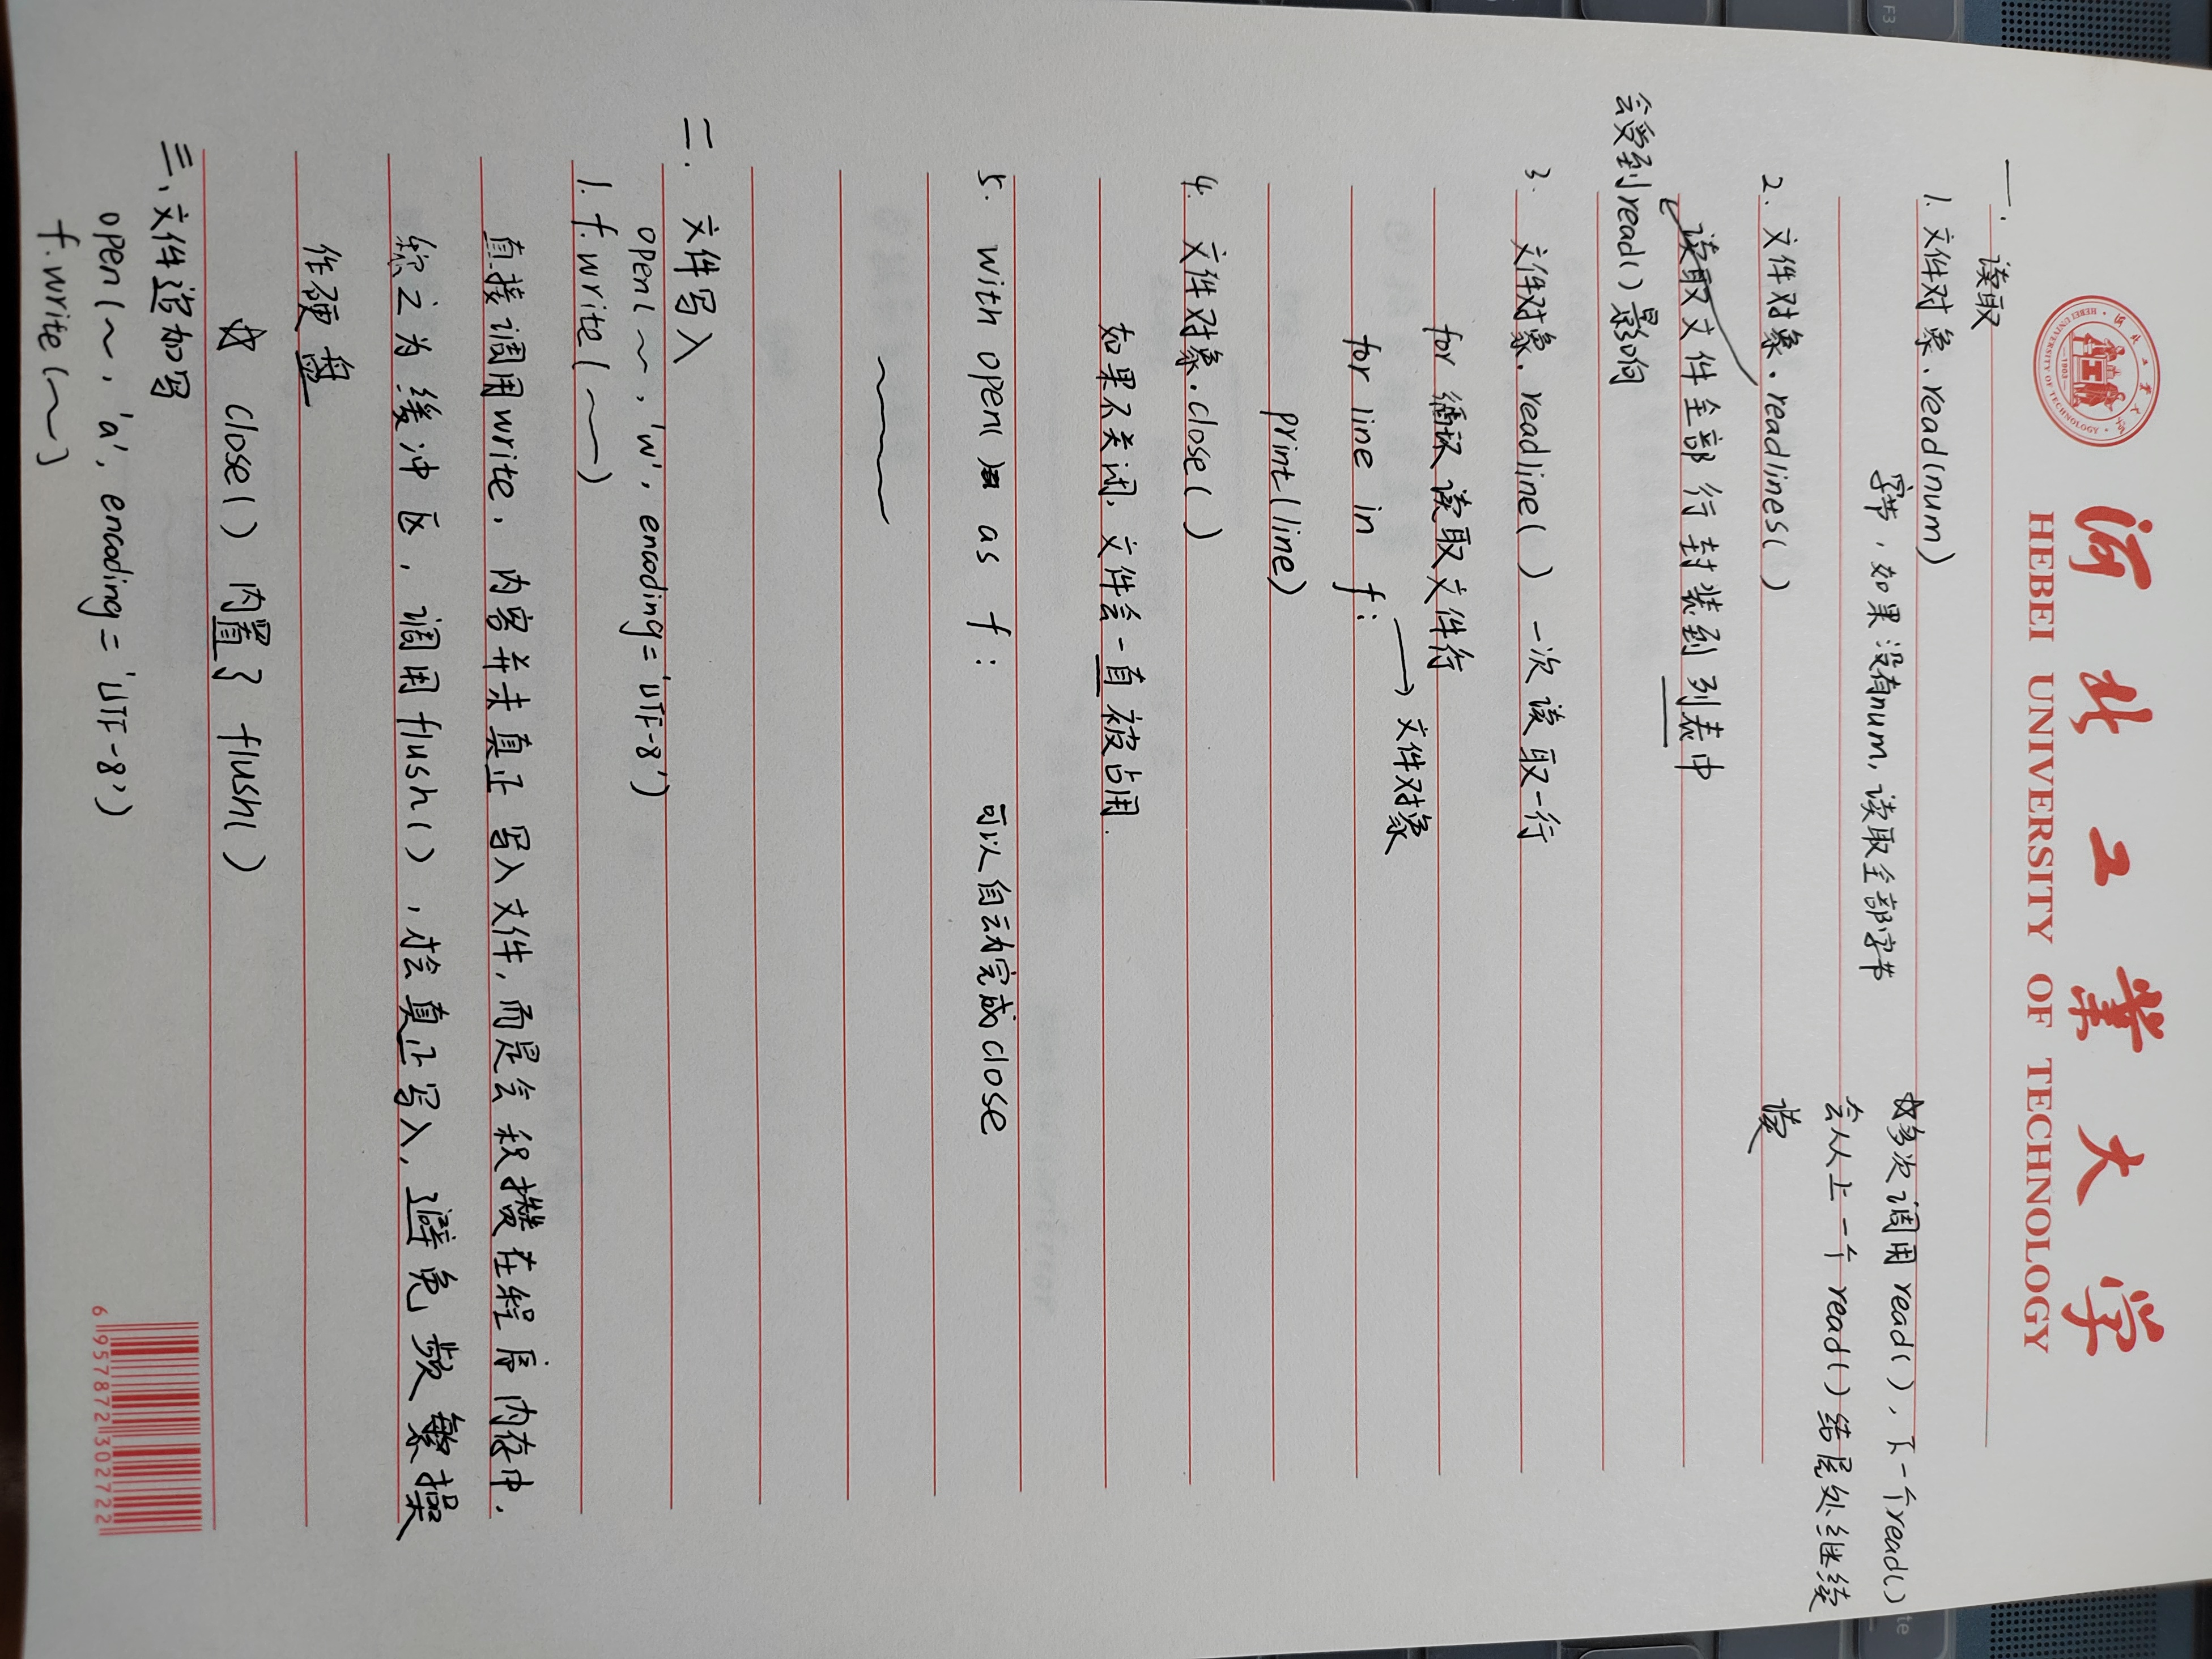 河北工業大学
HEBEI UNIVERSITY OF TECHNOLOGY
一. 读取
1. 文件对象.read(num)
字节, 如果没有num, 读取全部字节
☆多次调用 read(), 下一个read()
会从上一个 read() 结尾处继续
读
2. 文件对象.readlines( )
读取文件全部行封装到列表中
会受到read()影响
3. 文件对象.readline( ) 一次读取一行
for 循环读取文件行
→ 文件对象
for line in f:
print(line)
4. 文件对象.close( )
如果不关闭, 文件会一直被占用.
5. with open( ) as f: 可以自动完成close
二. 文件写入
open( ~ , 'w', encoding='UTF-8')
1. f.write( ~ )
直接调用write, 内容并未真正写入文件, 而是会积攒在程序内存中,
称之为缓冲区, 调用flush(), 才会真正写入, 避免频繁操
作硬盘
☆ close() 内置了 flush()
三、文件追加写
open( ~ , 'a', encoding='UTF-8')
f.write( ~ )
6 957872 302722